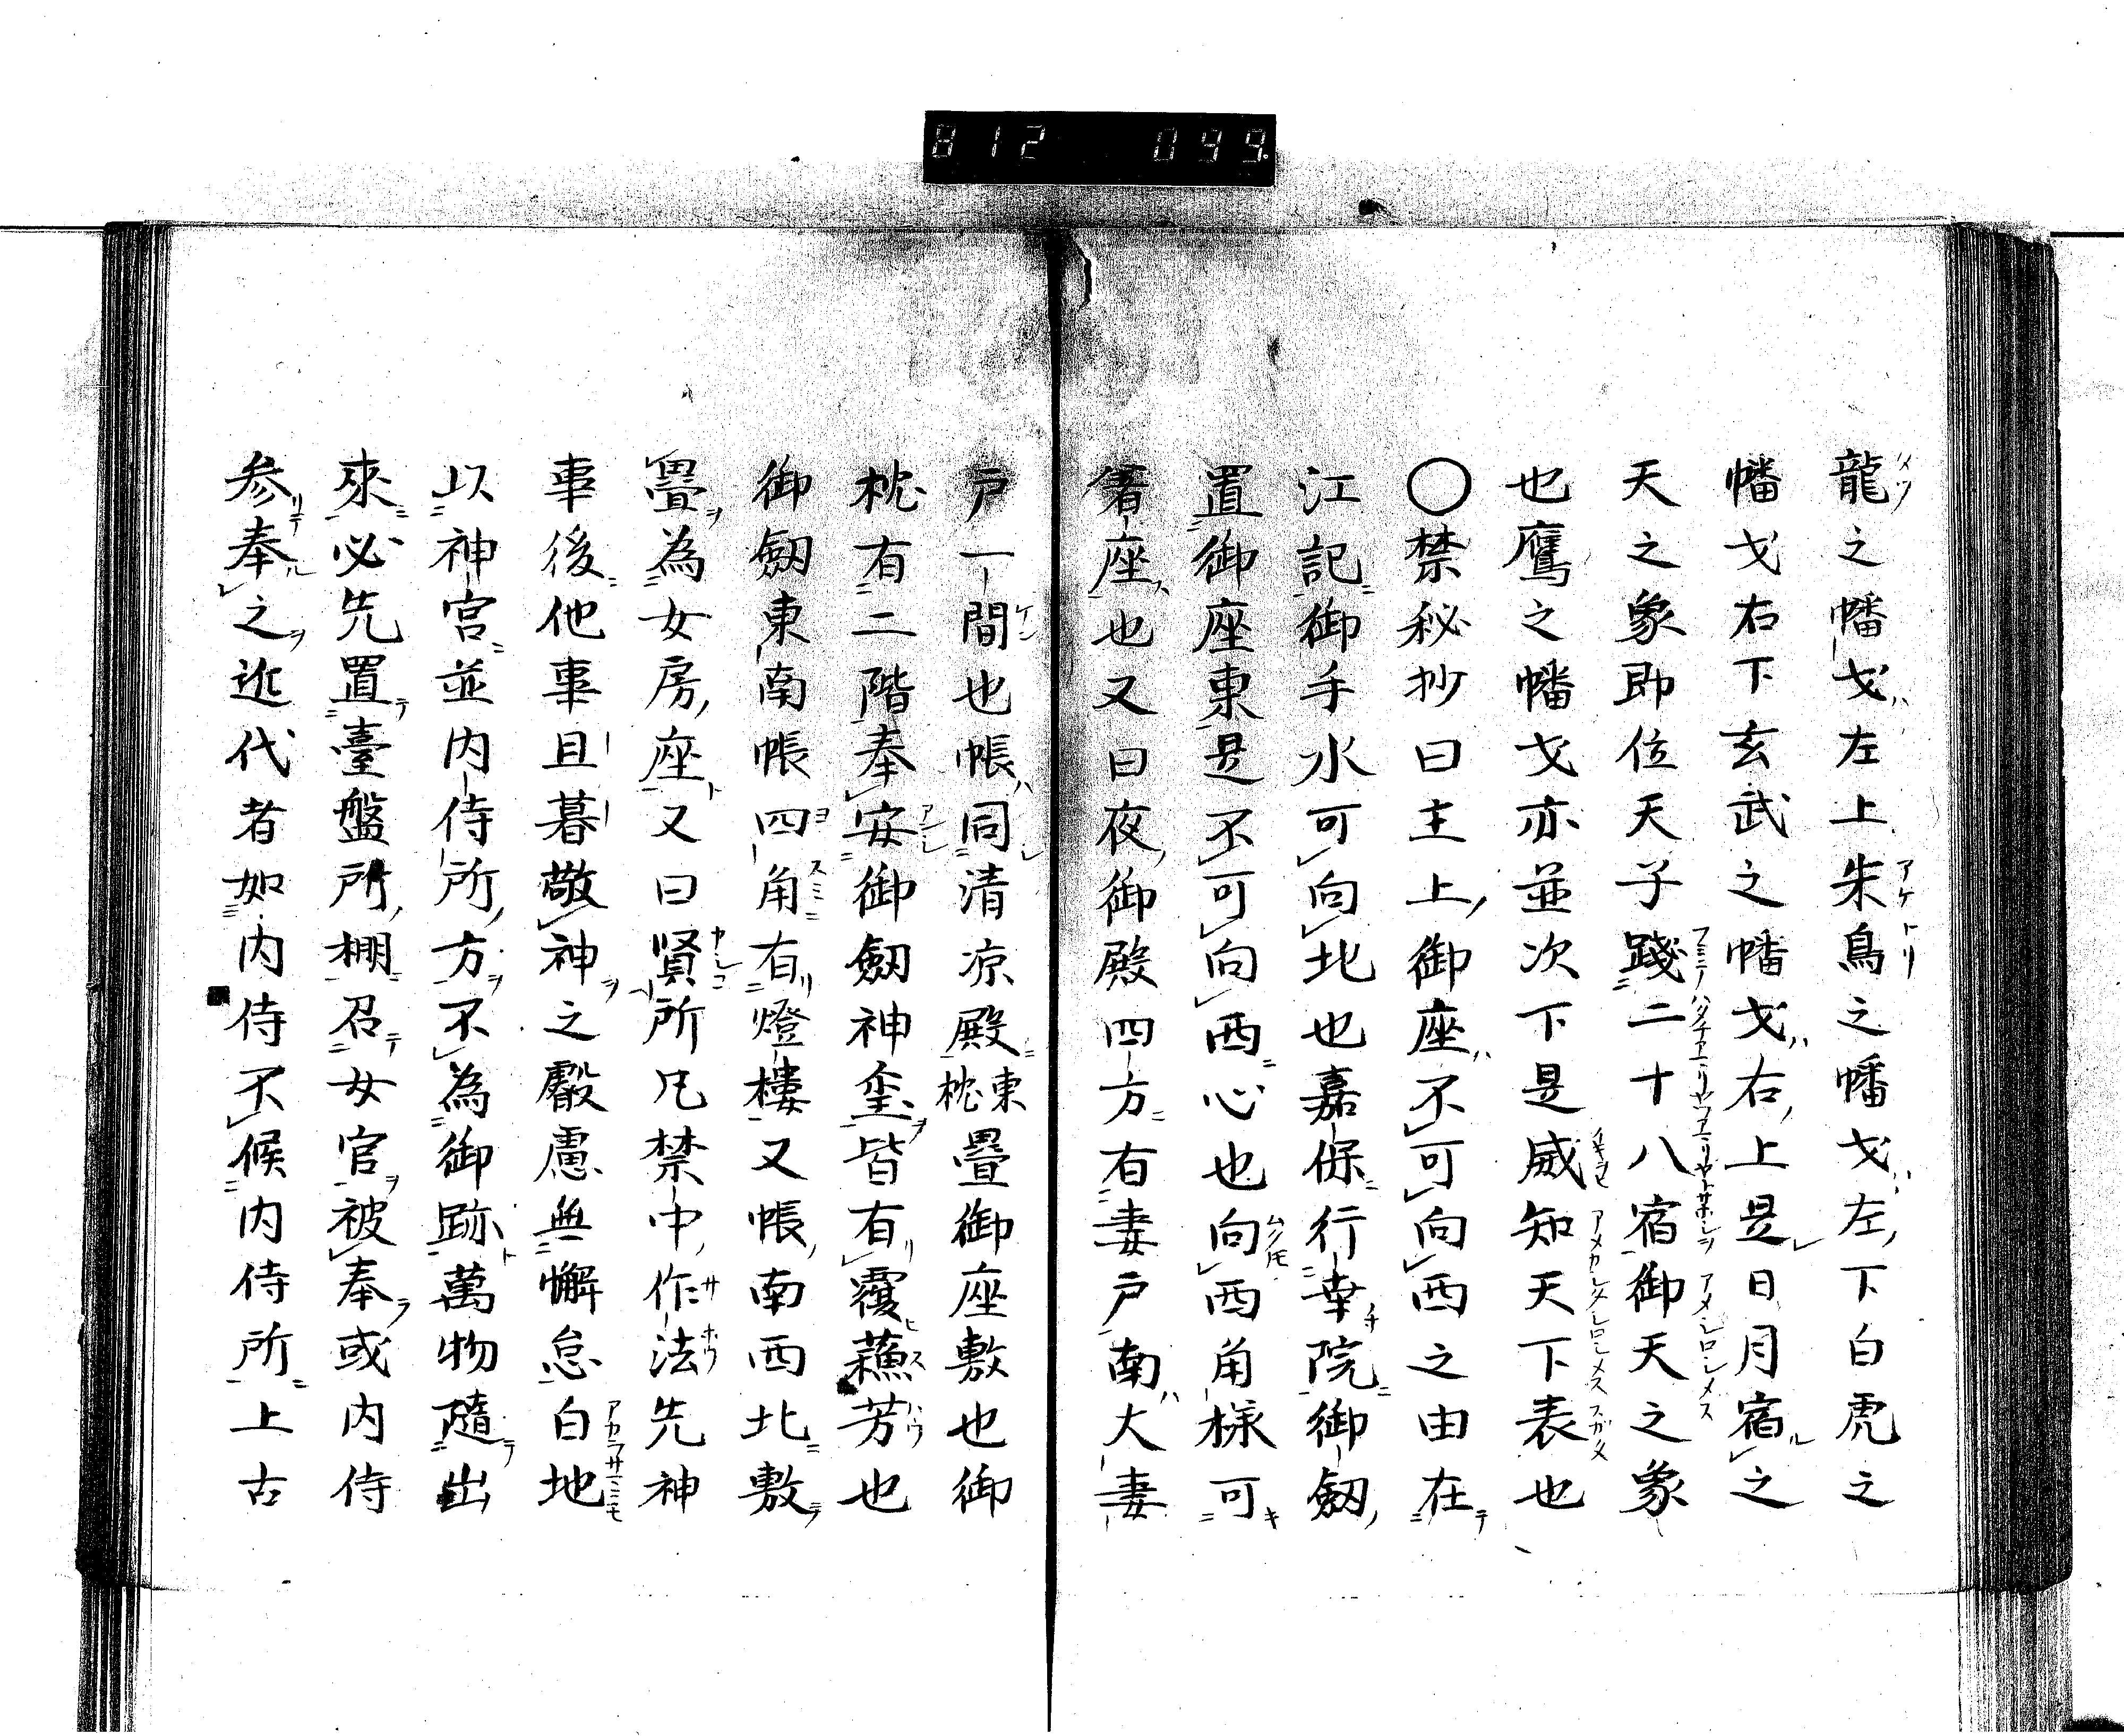 812 099.
龍之幡戈左上朱鳥之幡戈左下白虎之
幡戈右下玄武之幡戈右上是日月宿之
天之象即位天子踐二十八宿御天之象
也鷹之幡戈亦並次下是威知天下表也
〇禁秘抄曰主上御座不可向西之由在
江記御手水可向北也嘉保行幸院御劔
置御座東是不可向西心也向西角樣可
着座也又曰夜御殿四方有妻戸南大妻
戸一間也帳同清凉殿東枕疊御座敷也御
枕有二階奉安御劔神璽皆有覆蘓芳也
御劔東南帳四角有燈樓又帳南西北敷
疊為女房座又曰賢所凡禁中作法先神
事後他事且暮敬神之叡慮無懈怠白地
以神宮並内侍所方不為御跡萬物隨出
來必先置臺盤所棚召女官被奉或内侍
参奉之近代者如内侍不候内侍所上古